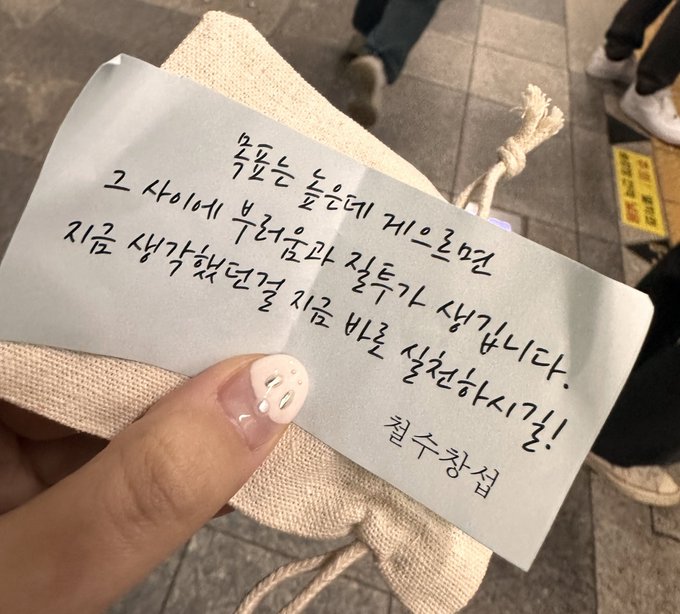 목표는 높은데 게으르면
그 사이에 부러움과 질투가 생깁니다.
지금 생각했던걸 지금 바로 실천하시길!
철수창섭